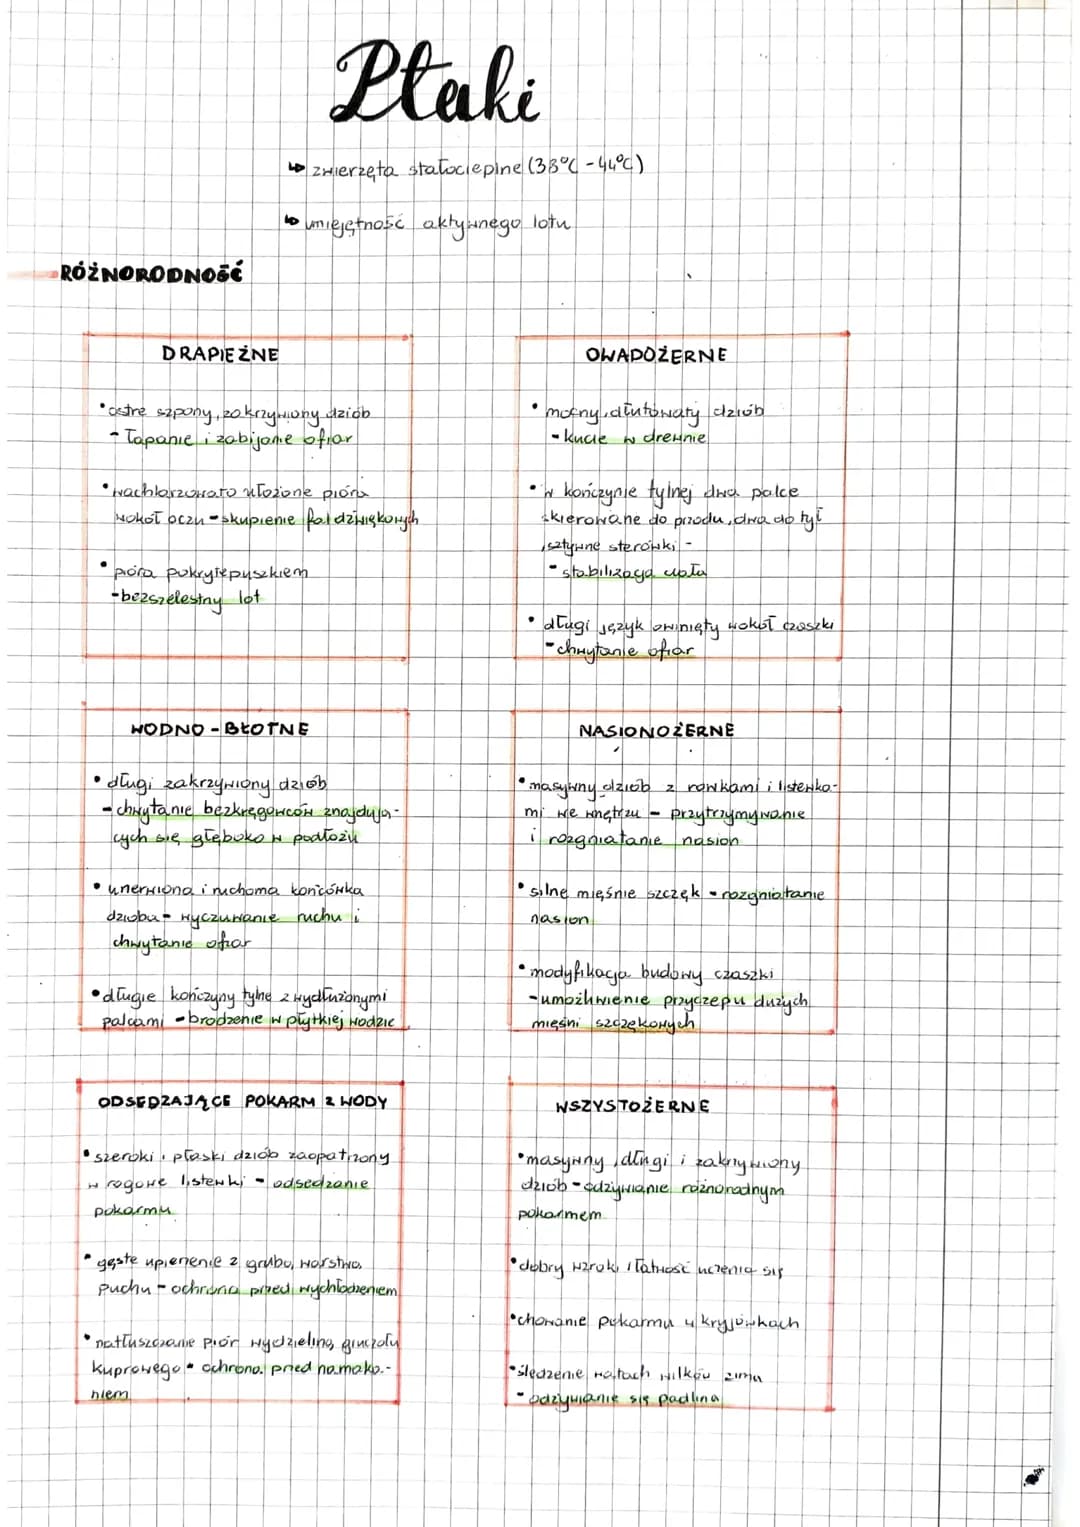 Ptaki
↳ zwierzęta stałocieplne (38°C - 44°C)
↳ umiejętność aktywnego lotu
RÓŻNORODNOŚĆ
DRAPIEŻNE
• ostre szpony, zakrzywiony dziób
- łapanie i zabijanie ofiar
• wachlarzowato ułożone pióra
wokół oczu - skupienie fal dźwiękowych
• pióra pokryte puszkiem
- bezszelestny lot
OWADOŻERNE
• mocny, dłutowaty dziób
- kucie w drewnie
• w kończynie tylnej dwa palce
skierowane do przodu, dwa do tył
, sztywne sterówki -
- stabilizacja ciała
• długi język owinięty wokół czaszki
- chwytanie ofiar
WODNO - BŁOTNE
• długi zakrzywiony dziób
- chwytanie bezkręgowców znajdują-
cych się głęboko w podłożu
• unerwiona i ruchoma końcówka
dzioba - wyczuwanie ruchu i
chwytanie ofiar
• długie kończyny tylne z wydłużonymi
palcami - brodzenie w płytkiej wodzie
NASIONOŻERNE
• masywny dziób z rowkami i listewka-
mi we wnętrzu - przytrzymywanie
i rozgniatanie nasion
• silne mięśnie szczęk - rozgniatanie
nasion
• modyfikacja budowy czaszki
- umożliwienie przyczepu dużych
mięśni szczękowych
ODSEDZAJĄCE POKARM Z WODY
• szeroki i płaski dziób zaopatrzony
w rogowe listewki - odsedzanie
pokarmu
• gęste upierzenie z grubą warstwą
puchu - ochrona przed wychłodzeniem
• natłuszczanie piór wydzieliną gruczołu
kuprowego - ochrona przed namaka-
niem
WSZYSTOŻERNE
• masywny, długi i zakrzywiony
dziób - odżywianie różnoradnym
pokarmem
• dobry wzrok i łatwość uczenia się
• chowanie pokarmu w kryjówkach
• śledzenie watach wilków zimą
- odżywianie się padliną